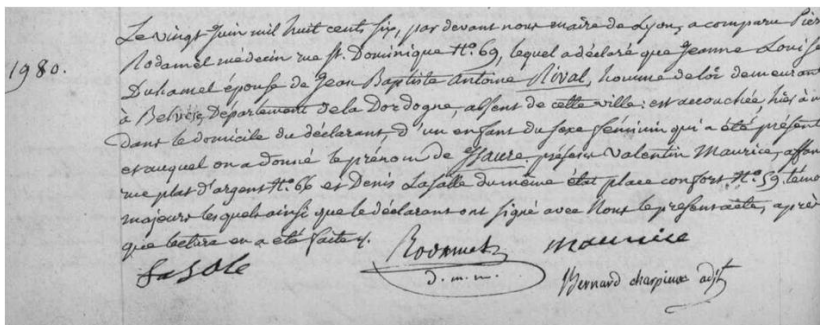 Le vingt Juin mil huit cents six, par devant nous maire de Lyon, a comparu Pier
1980.
Rodamel médecin rue St. Dominique N.o 69, lequel a déclaré que Jeanne Louise
Duhamel épouse de Jean Baptiste Antoine Rival, homme de loi demeurant
à Belvès, Département de la Dordogne, absent de cette ville: est accouchée, hier à
dans le domicile du déclarant, d'un enfant du sexe féminin qui a été présent
et auquel on a donné le prénom de présens Valentin Maurice, affan
rue plat d'argent N.o 66 et Denis Lasalle du même état place confort N.o 59 témo
majeurs lesquels ainsi que le déclarant ont signé avec Nous le présent acte, après
que lecture en a été faite
Lasale Rodamel maurice
d. m. m.
Bernard charpieux adjt